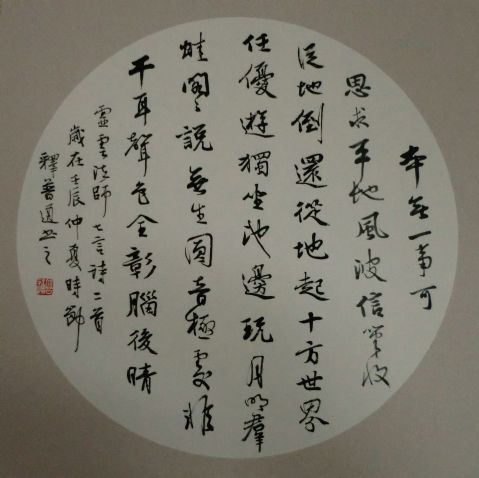 本無一事可
思求平地風波信手收
從地倒還從地起十方世界
任優遊獨坐池邊玩月明群
蛙閙〻說無生圓音極處非
干耳聲色全彰腦後睛
靈雲法師七言詩二首
歲在壬辰仲夏時節
釋普書之